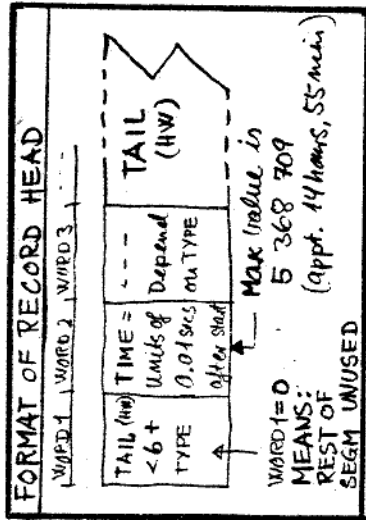 FORMAT OF RECORD HEAD
WORD1 WORD2 WORD3 ---
TAIL (HW)
<6+
TYPE
TIME =
Units of
0.01 secs
after start
---
Depend
on TYPE
TAIL
(HW)
WORD1=0
MEANS:
REST OF
SEGM UNUSED
Max value is
5 368 709
(appr. 14 hours, 55 min)